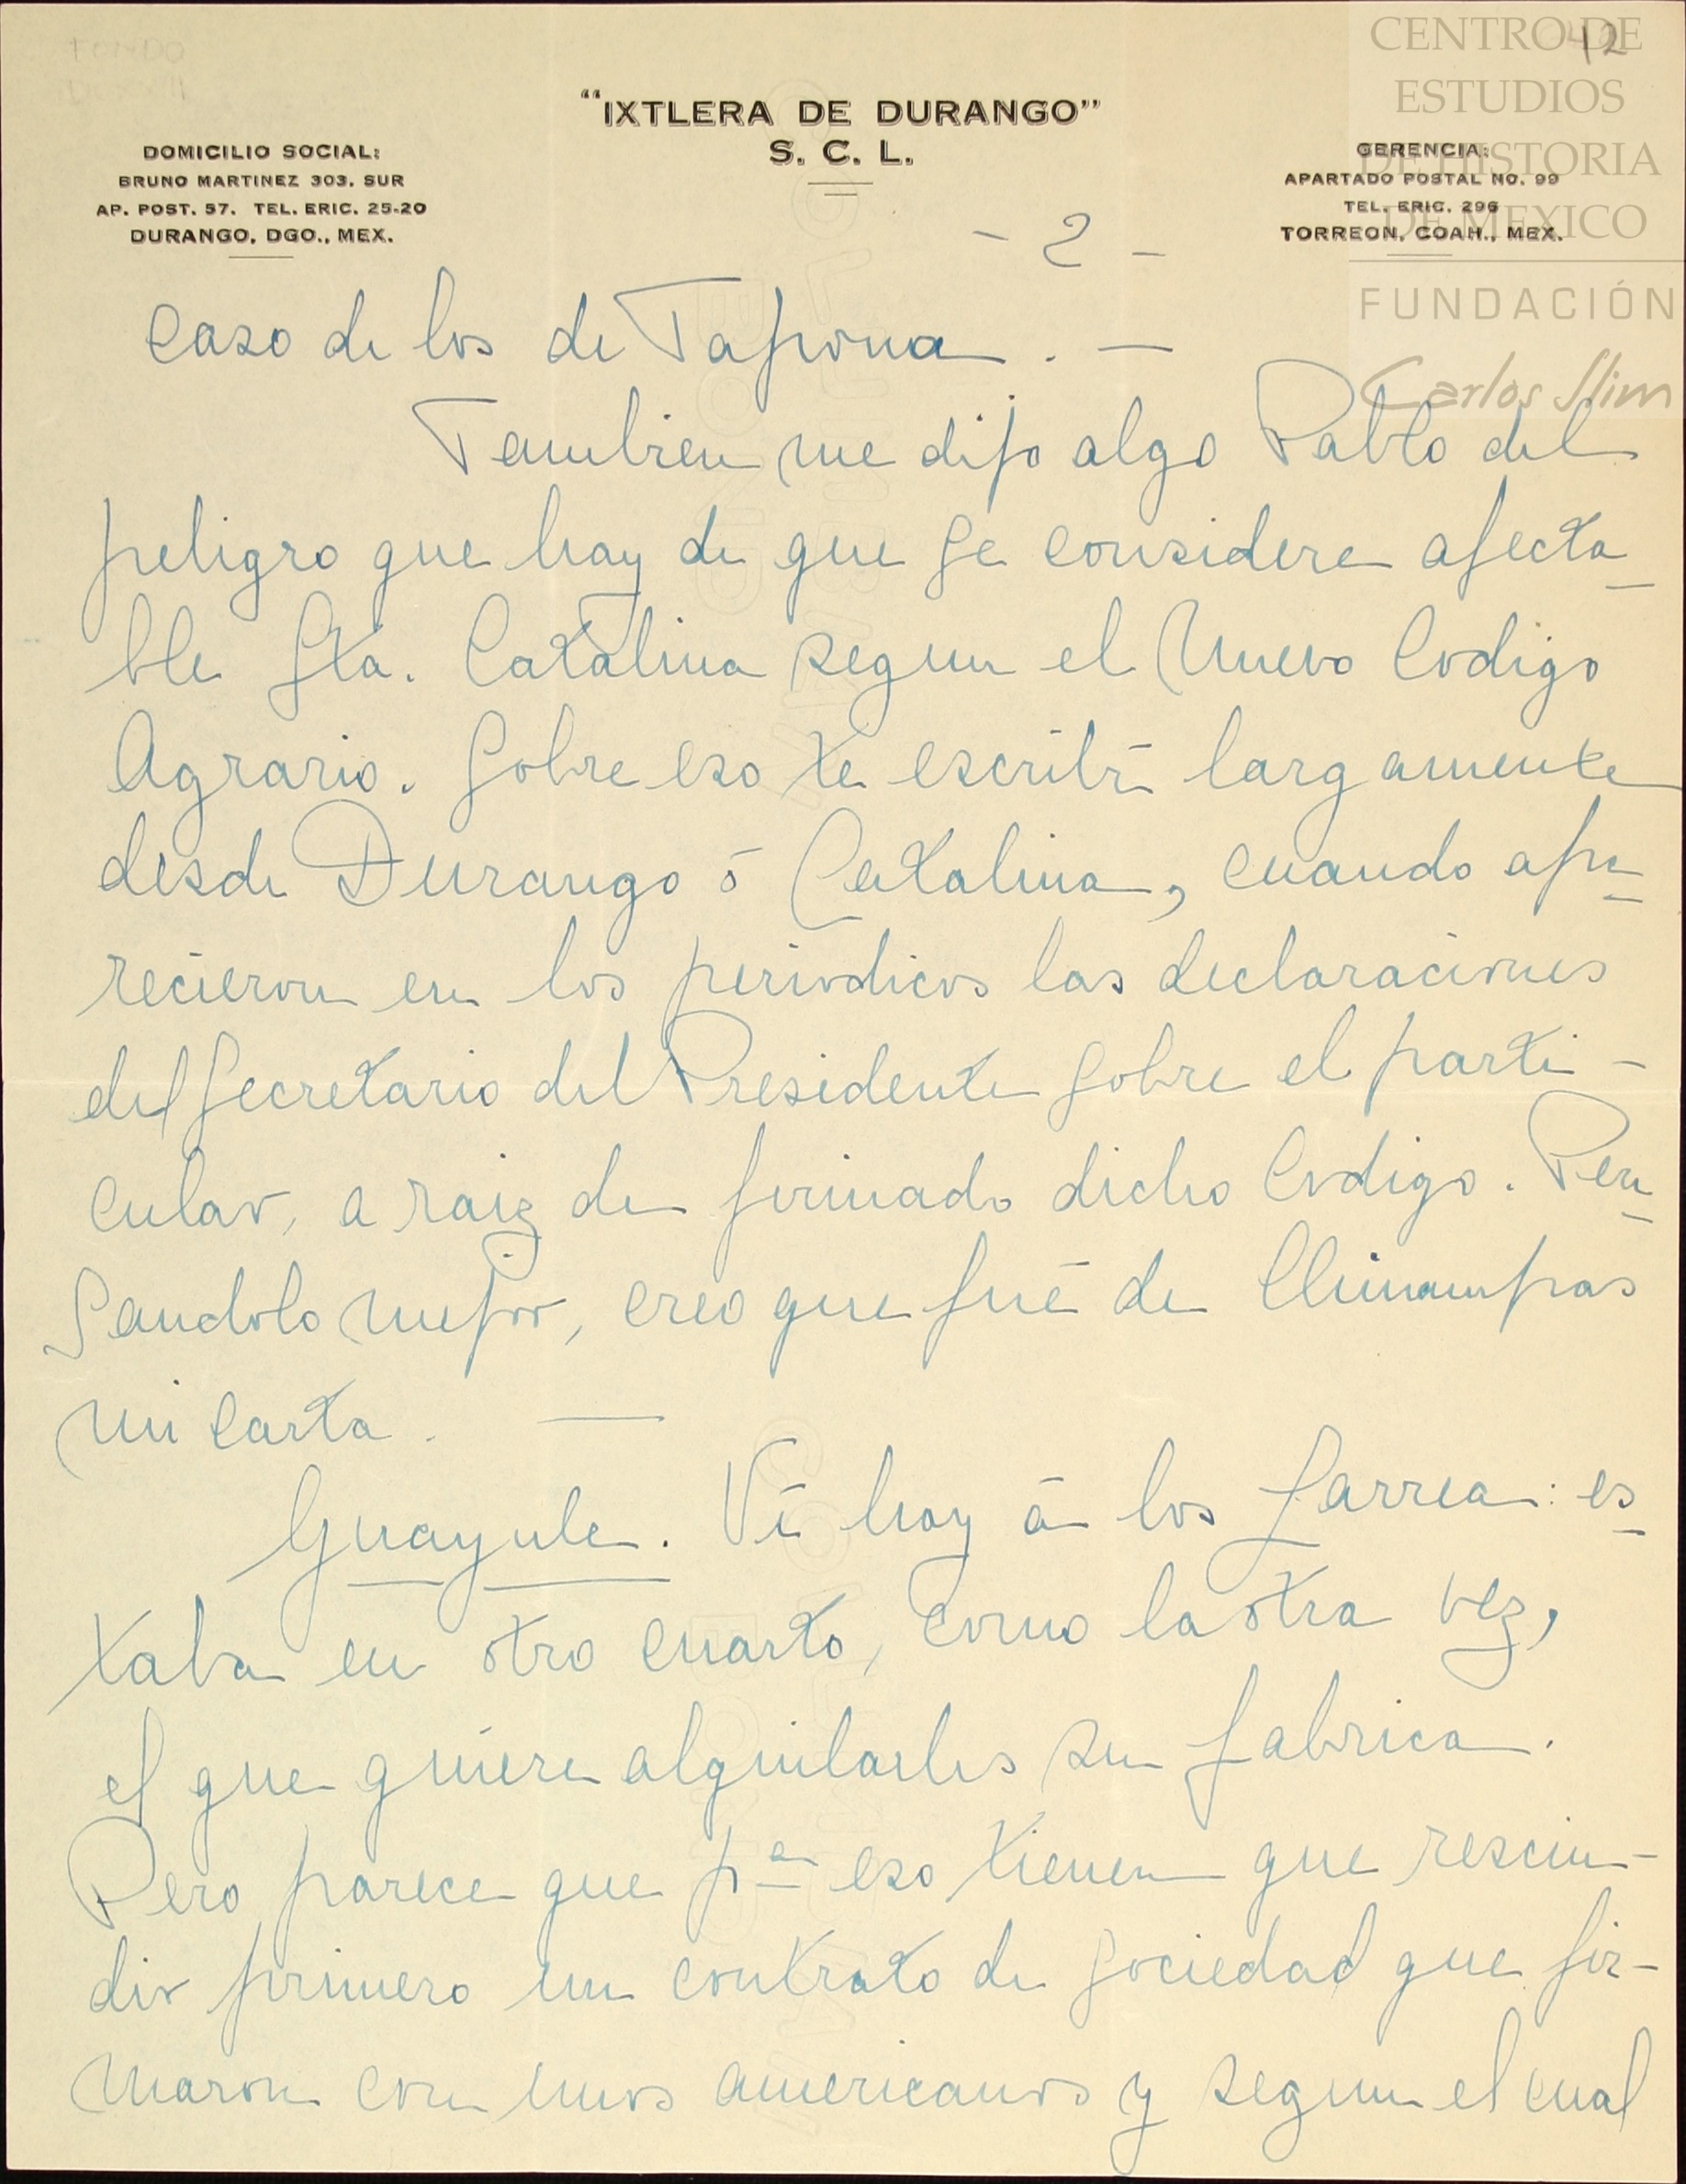 42
CENTRO DE
ESTUDIOS
DE HISTORIA
DE MEXICO
FUNDACIÓN
Carlos Slim
"IXTLERA DE DURANGO"
S. C. L.
DOMICILIO SOCIAL:
BRUNO MARTINEZ 303. SUR
AP. POST. 57. TEL. ERIC. 25-20
DURANGO, DGO., MEX.
GERENCIA:
APARTADO POSTAL NO. 99
TEL. ERIC. 296
TORREON, COAH., MEX.
- 2 -
caso de los de Tapona. —
Tambien me dijo algo Pablo del
peligro que hay de que se considere afecta-
ble Sta. Catalina segun el Nuevo Codigo
Agrario. Sobre eso te escribí largamente
desde Durango ó Catalina, cuando apa-
recieron en los periodicos las declaraciones
del Secretario del Presidente sobre el parti-
cular, a raiz de firmado dicho Codigo. Pen-
sandolo mejor, creo que fué de Chinampas
mi carta. —
Guayule. Ví hoy á los Larrea: es-
taba en otro cuarto, como la otra vez,
el que quiere alquilarles su fabrica.
Pero parece que pa eso tienen que rescin-
dir primero un contrato de sociedad que fir-
maron con unos americanos y segun el cual